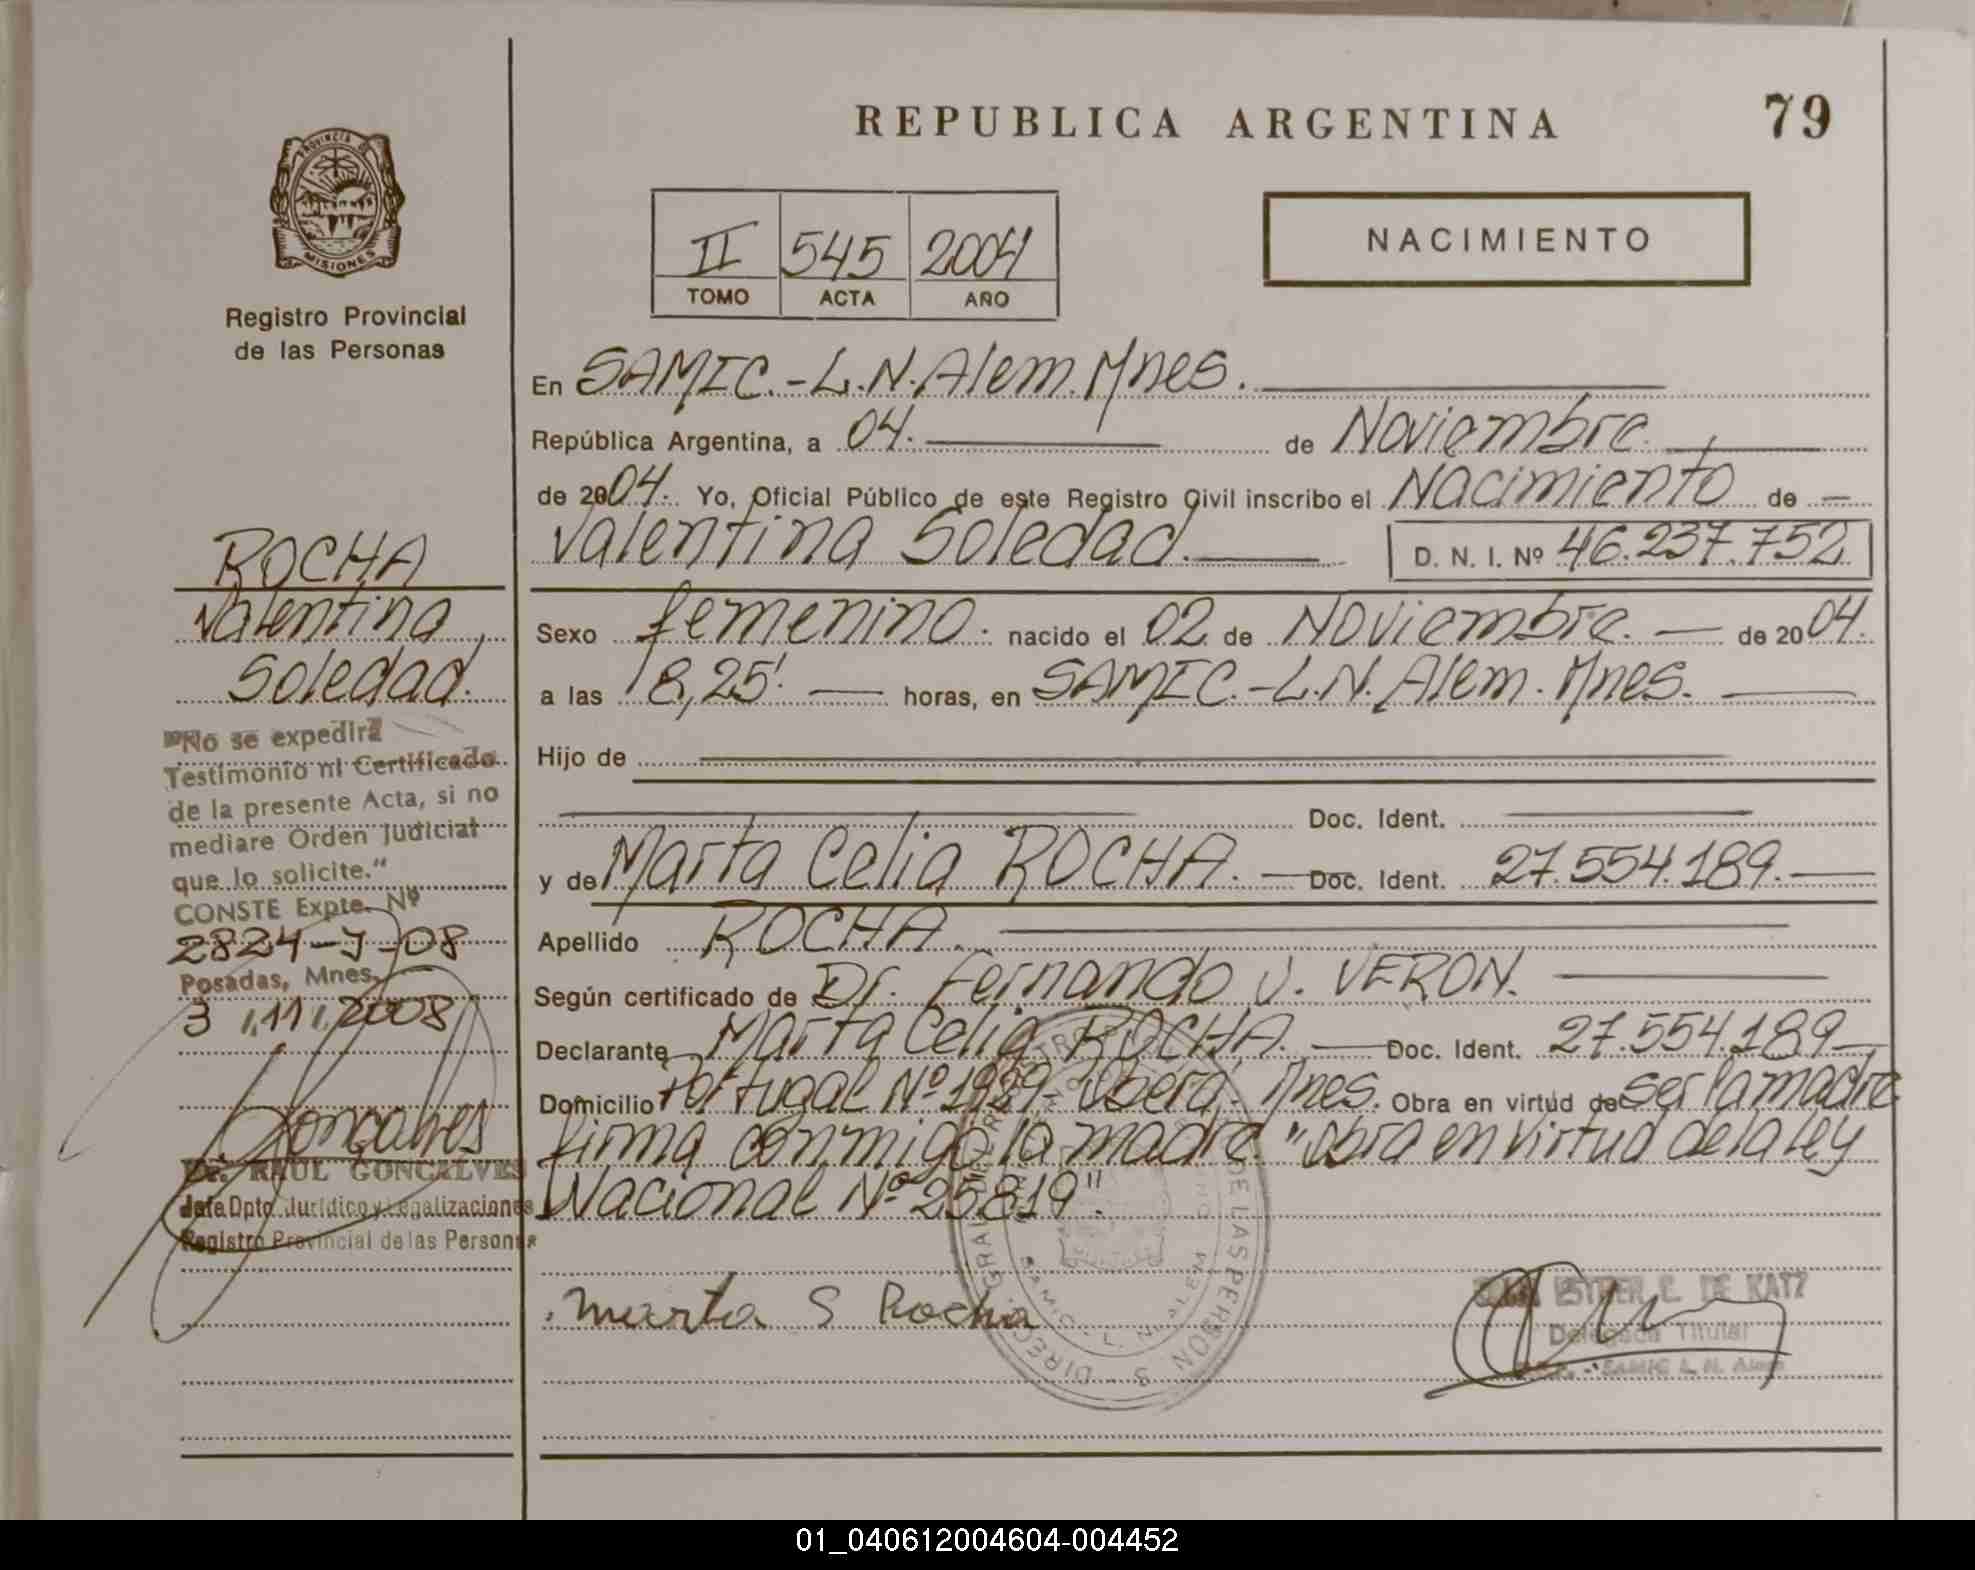 REPUBLICA ARGENTINA
79
PROVINCIA DE
MISIONES
Registro Provincial
de las Personas
II 545 2004
TOMO ACTA AÑO
NACIMIENTO
En SAMIC.-L.N.Alem.Mnes.
República Argentina, a 04. de Noviembre.
de 2004. Yo, Oficial Público de este Registro Civil inscribo el Nacimiento de
Valentina Soledad. D. N. I. Nº 46.237.752
Sexo femenino. nacido el 02 de Noviembre. de 2004.
a las 18,25'. horas, en SAMIC.-L.N.Alem.Mnes.
Hijo de
Doc. Ident.
y de Marta Celia ROCHA. Doc. Ident. 27.554.189.
Apellido ROCHA.
Según certificado de Dr. Fernando J. VERON.
Declarante Marta Celia ROCHA. Doc. Ident. 27.554.189
Domicilio Portugal Nº 1929- Oberá.- Mnes. Obra en virtud de ser la madre
firma conmigo la madre. "Obra en virtud de la ley
Nacional Nº 25819".
Marta S Rocha
ESTHER C. DE KATZ
Delegada Titular
SAMIC L. N. Alem
DE LAS PERSONAS
SAMIC - L. N. ALEM
ROCHA
Valentina
Soledad.
"No se expedirá
Testimonio ni Certificado
de la presente Acta, si no
mediare Orden Judicial
que lo solicite."
CONSTE Expte. Nº
2824-J-08
Posadas, Mnes.
3 / 11 / 2008
Goncalves
Dr. RAUL GONCALVES
Jefe Dpto. Jurídico y Legalizaciones
Registro Provincial de las Personas
01_040612004604-004452